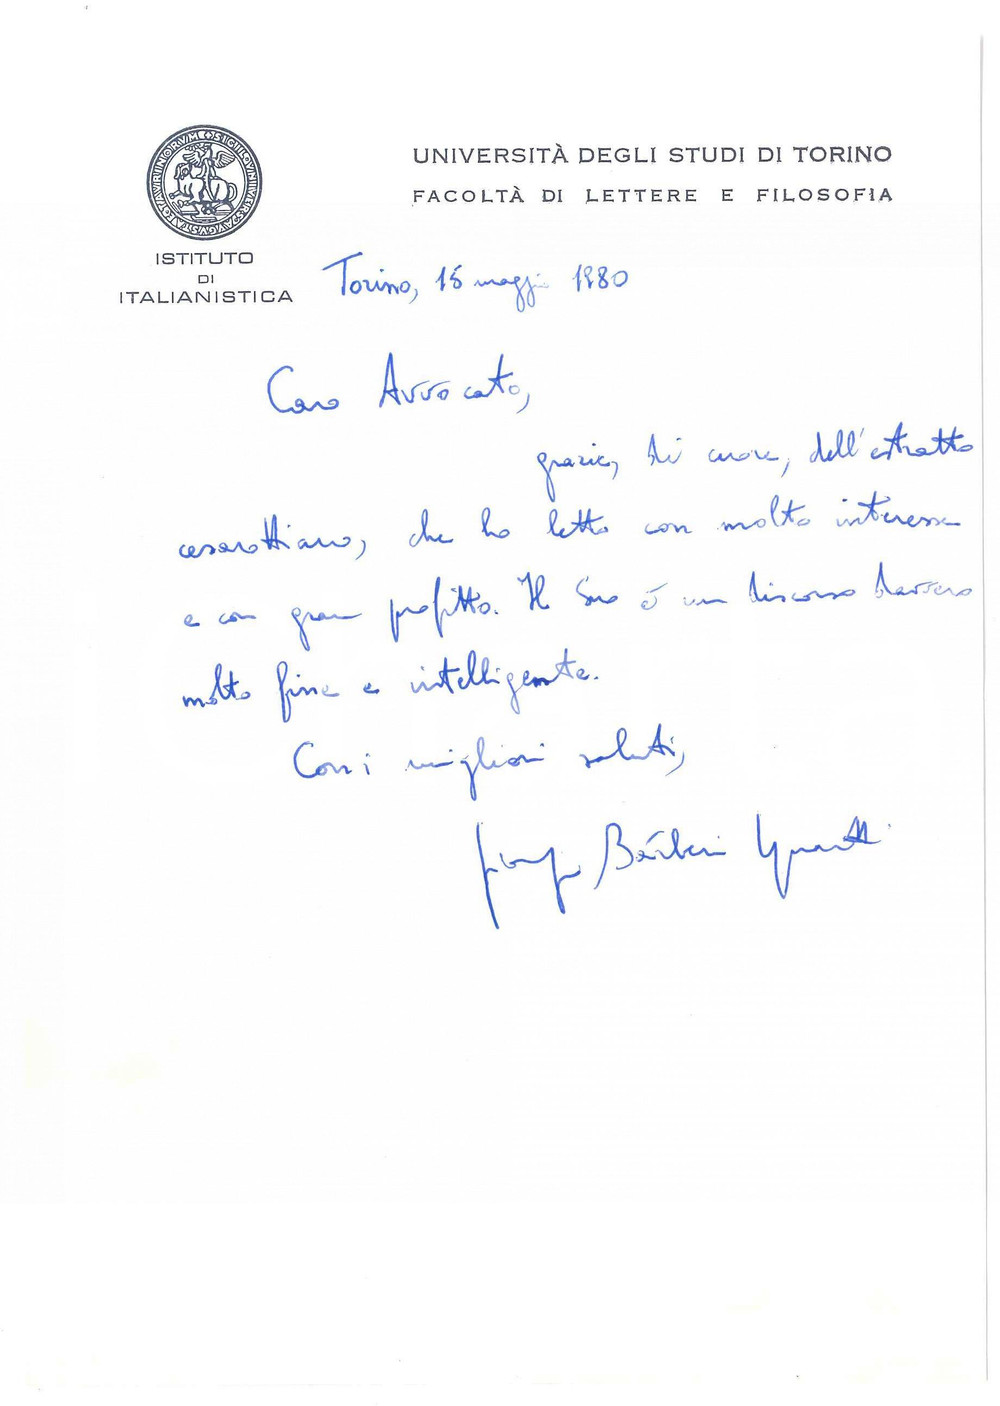 UNIVERSITÀ DEGLI STUDI DI TORINO
FACOLTÀ DI LETTERE E FILOSOFIA
ISTITUTO
DI
ITALIANISTICA
Torino, 15 maggio 1980
Caro Avvocato,
grazie, di cuore, dell'estratto
cesarottiano, che ho letto con molto interesse
e con gran profitto. Il Suo è un discorso davvero
molto fine e intelligente.
Con i migliori saluti,
Giorgio Bárberi Squarotti